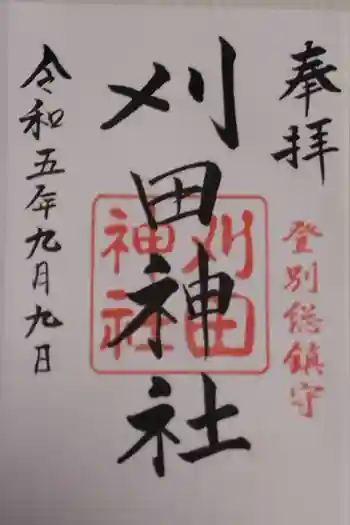 奉拝
登別総鎮守
刈田神社
刈田
神社
令和五年九月九日